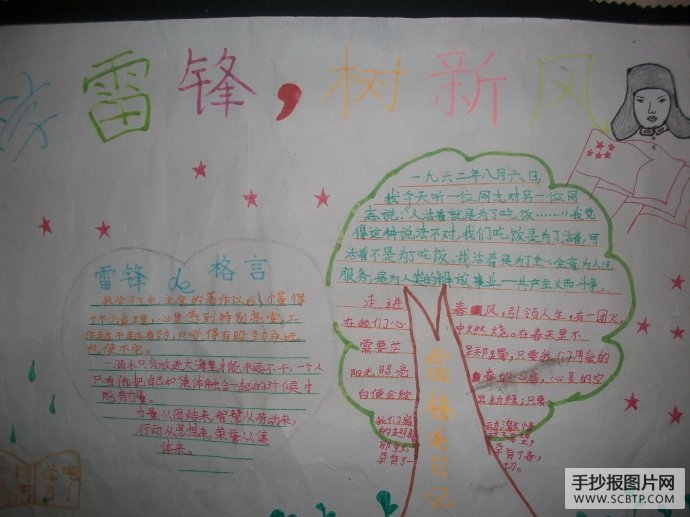 雷锋,树新风
一九六二年八月六日
我今天听一位同志对另一位同
志说:"人活着就是为了吃饭……"我觉
得这种说法不对,我们吃饭是为了活着,可
活着不是为了吃饭。我活着是为了全心全意为人民
服务,是为人类的解放事业——共产主义而斗争。
雷锋de格言
我学习了毛主席的著作以后,懂得
了不少道理,心里感到特别亮堂,工
作越干越有劲,只觉得有股劲永远
也使不完。
一滴水只有放进大海里才能永远不干,一个人
只有他把自己和集体融合一起的时候才
能有力量。
力量从团结来,智慧从劳动来,
行动从思想来,荣誉从集
体来。
走进 春风,引领人生,有一团火
在我们心 中燃烧。在春天里不
需要茫 只要我们用爱的
阳光照亮 春的心扉,心灵的空
白便会绽 出新绿;只要
我们 动激情
的 希望,
那就
孕育了 孕育了春,
雷锋的日记
学习吧
手抄报图片网
WWW.SCBTP.COM